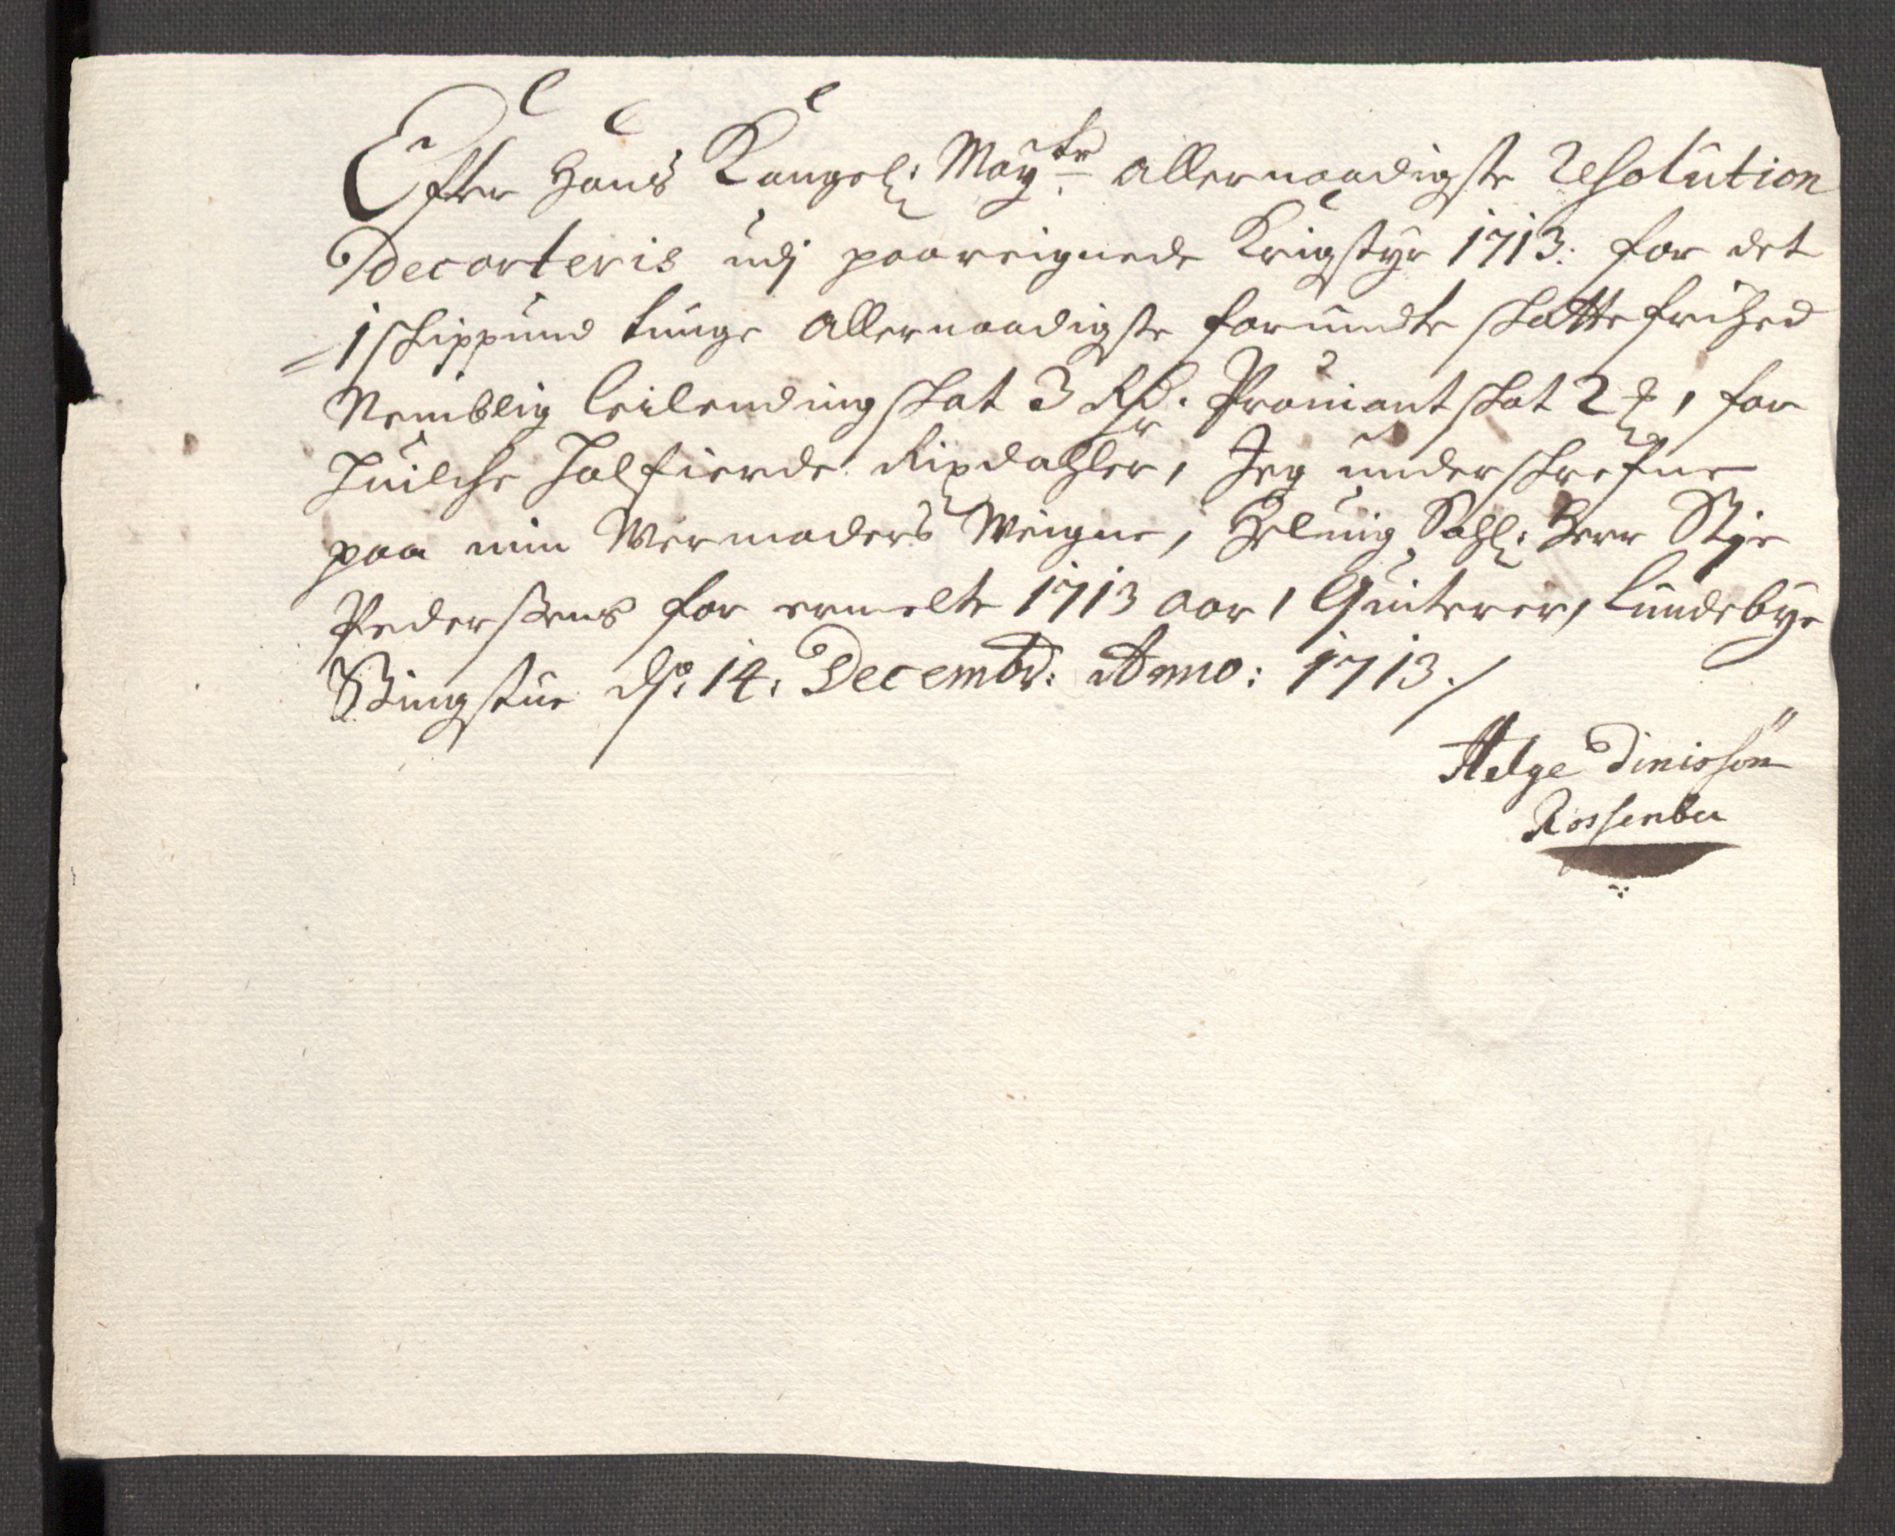 Efter Hans Kongel: May:ts allernaadigste Resolution
Decorteris udj paareignede Krigstyr 1713. for det
1 schippund tunge allernaadigste forundte skattefrihed
Nemblig leilending skat 3 Rd. Proviant skat 2 , for
huilche halfierde Rixdahler, Jeg underschrefne
paa min Wermoders Weigne, Helwig Sahl: Herr Stje
Pedersens for ermelte 1713 aar, Quiterer, Lundebye
Bingstue ds: 14. Decembr: Anno: 1713./
Helge Dinisson
Rossenbu